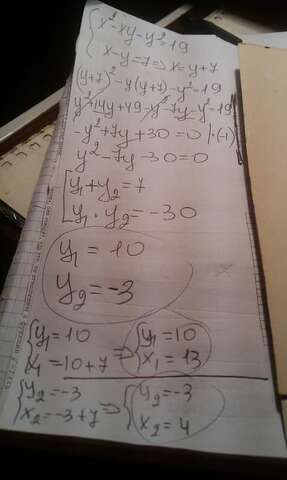 {x² - xy - y² = 19
{x - y = 7 => x = y + 7
(y+7)² - y(y+7) - y² = 19
y² + 14y + 49 - y² - 7y - y² = 19
-y² + 7y + 30 = 0 | · (-1)
y² - 7y - 30 = 0
[y₁ + y₂ = 7
[y₁ · y₂ = -30
y₁ = 10
y₂ = -3
{y₁ = 10 => {y₁ = 10
{x₁ = 10 + 7 => {x₁ = 13
{y₂ = -3 => {y₂ = -3
{x₂ = -3 + 7 => {x₂ = 4